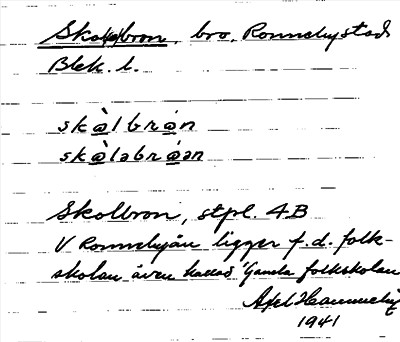 Skol(e)bron, bro, Ronneby stad
Blek. l.
skὰlbrón
skὰləbróən
Skolbron, stpl. 4B
V Ronnebyån ligger f.d. folk-
skolan även kallad "Gamla folkskolan
Axel
1941